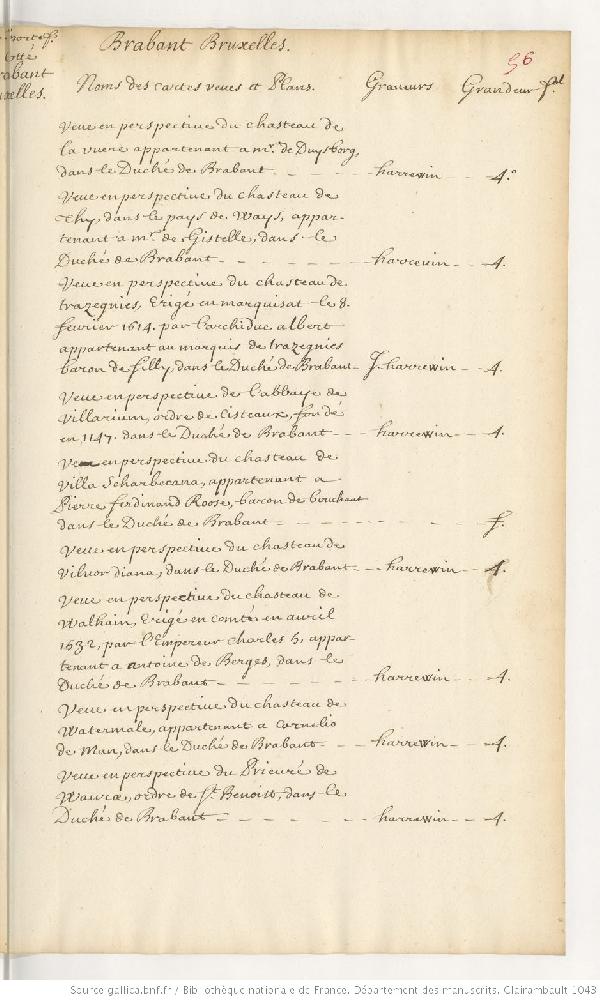 Brabant Bruxelles.
56
cotté
rabant
xelles.
Noms des cartes veues et Plans. Graveurs Grandeur
Veue en perspective du chasteau de
la vuere appartenant a mr. de Duysborg,
dans le Duché de Brabant - - - harrewin - - 4.°
Veue en perspective du chasteau de
Thy, dans le pays de Ways, appar-
tenant a mr. de Gistelle, dans le
Duché de Brabant - - - - - - harrewin - - 4.
Veue en perspective du chasteau de
trazegnies, Erigé en marquisat le 8.
fevrier 1614. par l'archiduc albert
appartenant au marquis de trazegnies
baron de silly, dans le Duché de Brabant - J. harrewin - - 4.
Veue en perspective de l'abbaye de
Villarium, ordre de cisteaux, fondé
en 1147. dans le Duché de Brabant - - - harrewin - - 4.
Veue en perspective du chasteau de
Villa Scharbecana, appartenant a
Pierre ferdinand Roose, baron de bouchout
dans le Duché de Brabant - - - - - - - - f.
Veue en perspective du chasteau de
Vilvor diana, dans le Duché de Brabant - - harrewin - - f.
Veue en perspective du chasteau de
Walhain, Erigé en comté en avril
1532, par l'Empereur Charles 5, appar-
tenant a antoine de Berges, dans le
Duché de Brabant - - - - - - harrewin - - 4.
Veue en perspective du chasteau de
Watermale, appartenant a Cornelio
de Man, dans le Duché de Brabant - - - harrewin - - 4.
Veue en perspective du Prieuré de
Wavræ, ordre de St. Benoist, dans le
Duché de Brabant - - - - - - harrewin - - 4.
Source gallica.bnf.fr / Bibliothèque nationale de France. Département des manuscrits. Clairambault 1043